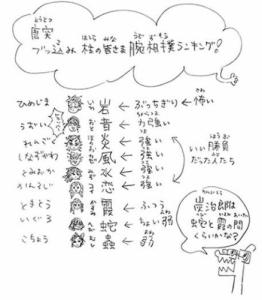 唐突
とうとつ
ブッ込み 柱の皆さま 腕相撲ランキング!
ひめじま 岩 ← ぶっちぎり ← 怖い
うずい 音 ← 力強い
れんごく 炎 ← 強い
しなずがわ 風 ← 強い
とみおか 水 ← 強い
かんろじ 恋 ← 強い
いい勝負だった人たち
ときとう 霞 ← ふつう
いぐろ 蛇 ← ちょい弱
こちょう 蟲 ← 弱
炭治郎は
蛇と霞の間
くらいかな?